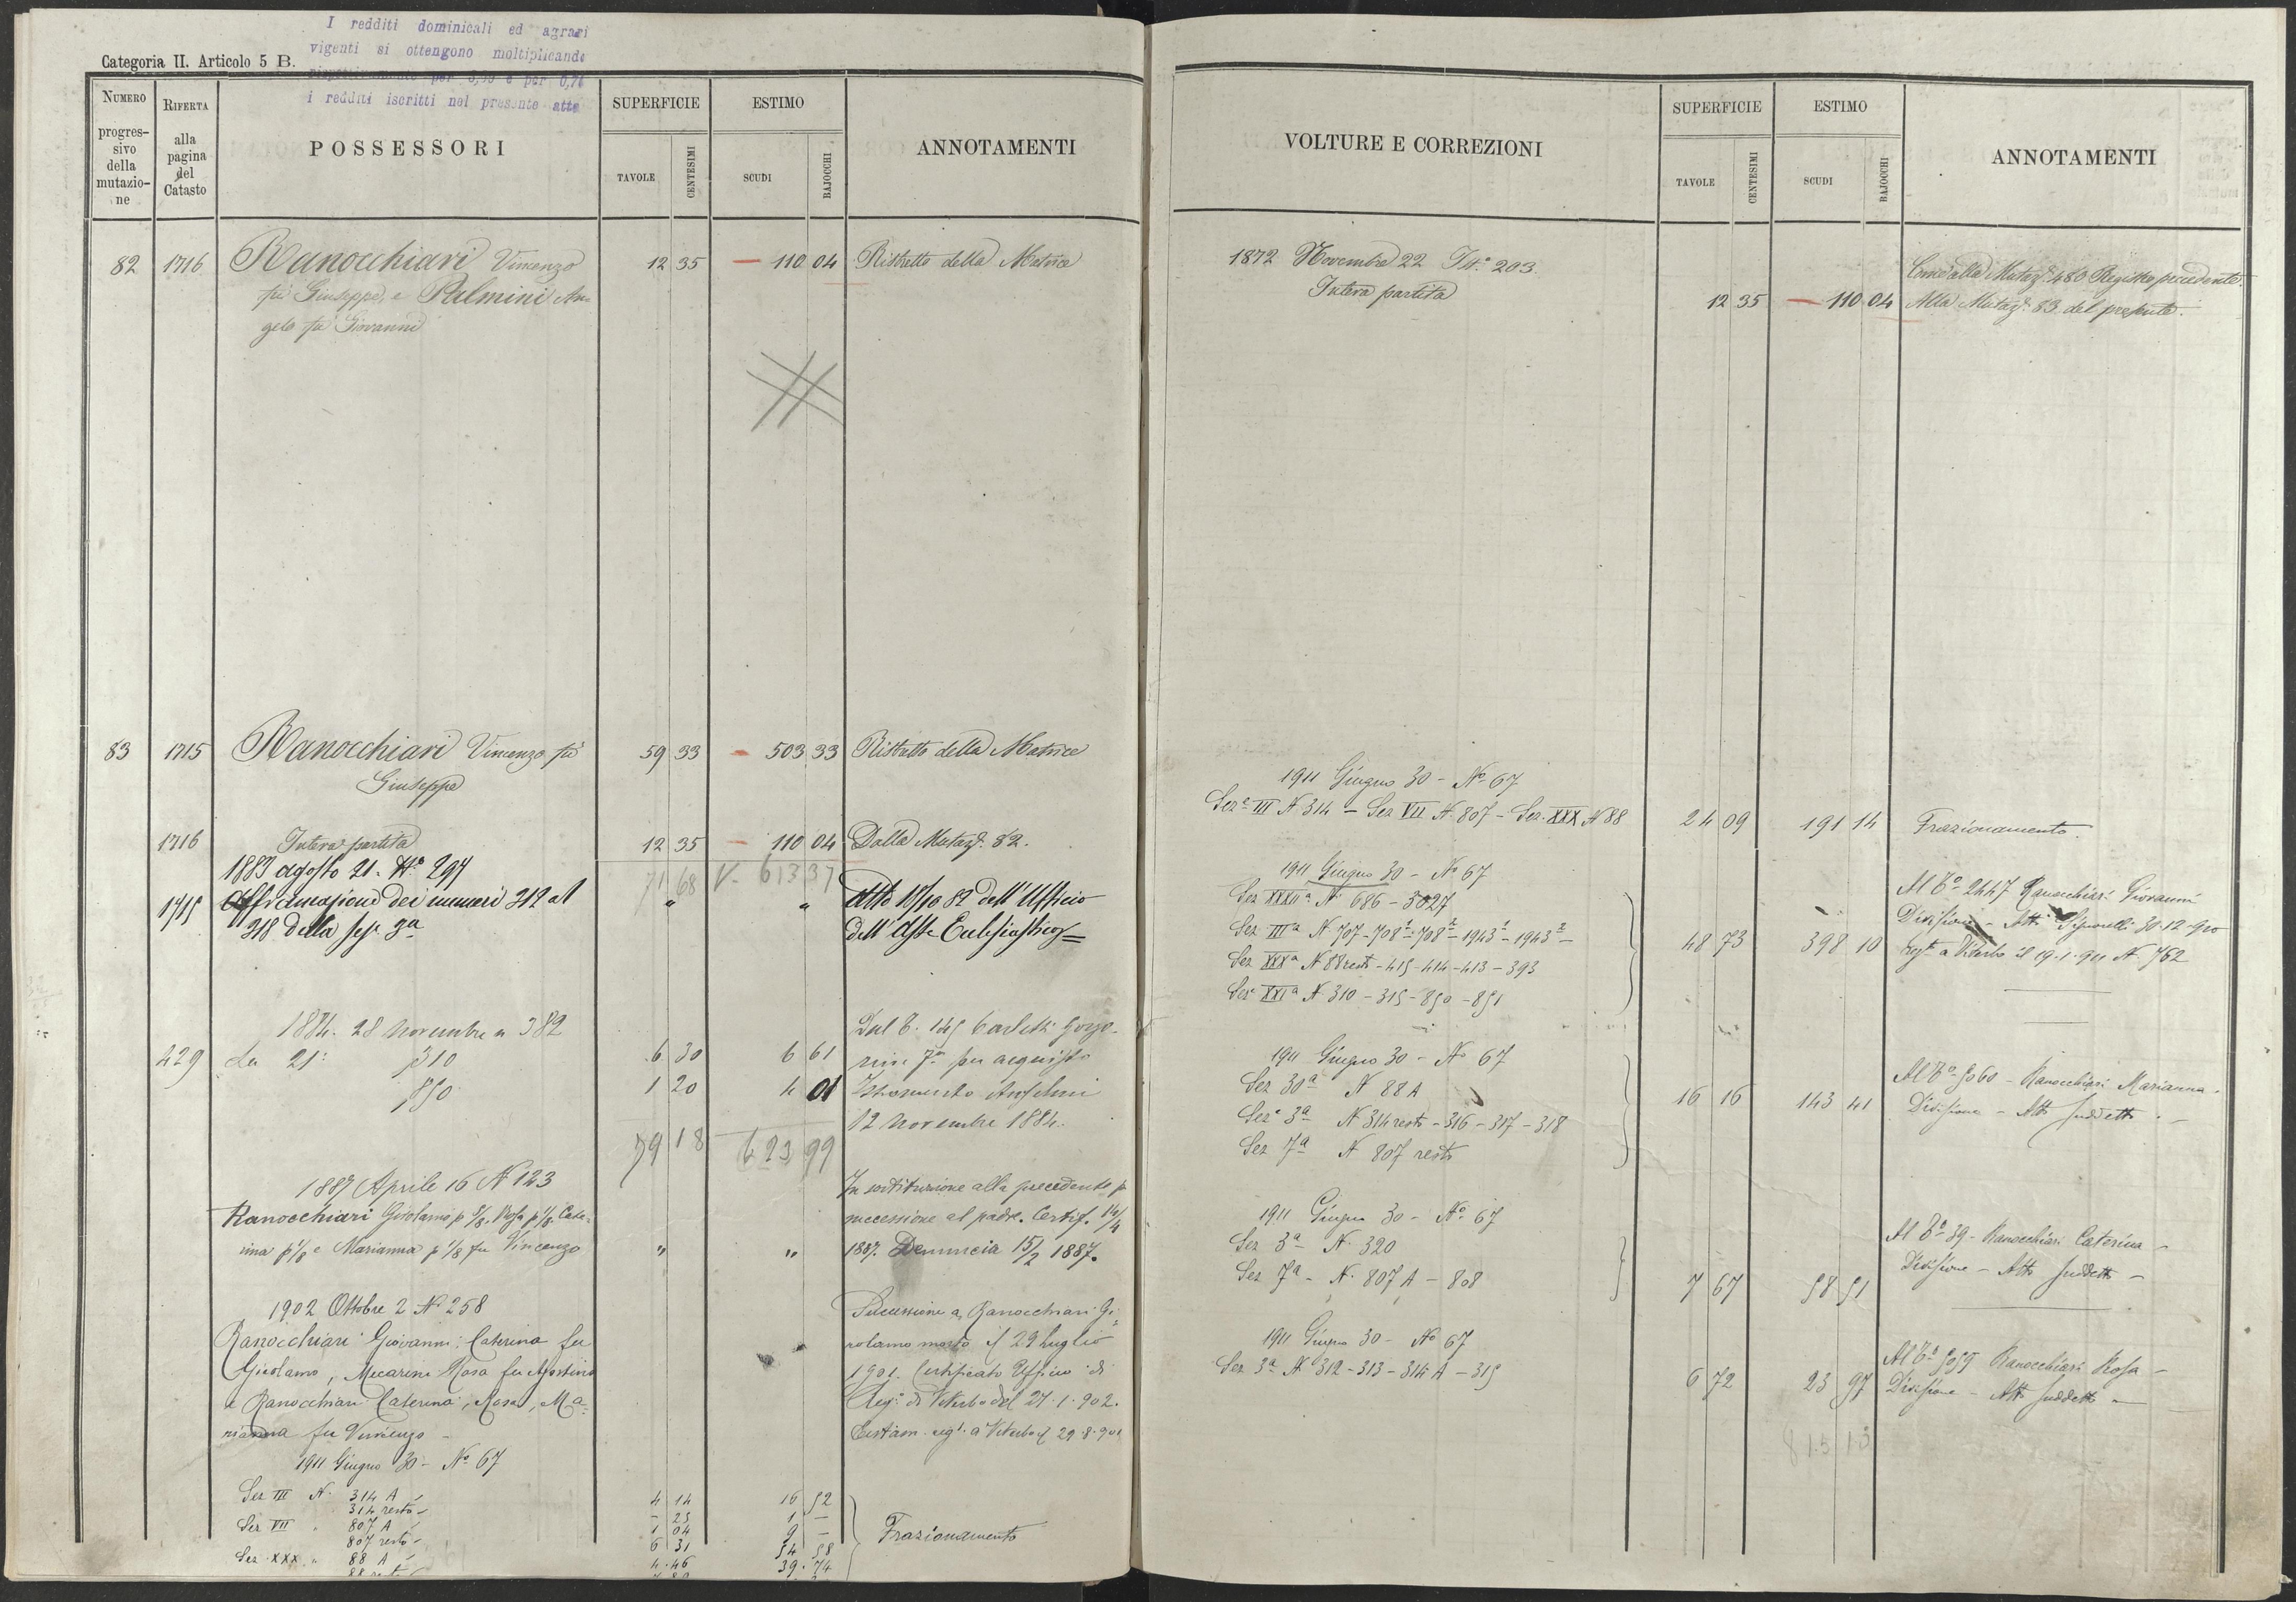 I redditi dominicali ed agrari
vigenti si ottengono moltiplicando
per e per 0,74
i redditi iscritti nel presente atto
Categoria II. Articolo 5 B.
NUMERO progressivo della mutazione
RIFERTA alla pagina del Catasto
POSSESSORI
SUPERFICIE
TAVOLE CENTESIMI
ESTIMO
SCUDI BAJOCCHI
ANNOTAMENTI
82 1716 Ranocchiari Vincenzo 12 35 — 110 04 Ristretto della Matrice
fu Giuseppe, e Palmini An-
gelo fu Giovanni
83 1715 Ranocchiari Vincenzo fu 59 33 — 503 33 Ristretto della Matrice
Giuseppe
1716 Intera partita 12 35 — 110 04 Dalla Mutaz.e 82.
71 68 613 37
1883 agosto 21. N.o 297
1715 Affrancazione dei numeri 312 al " " Atto 18/10 82 dell'Ufficio
318 della sez. 3a dell'Asse Ecclesiastico
1884. 28 Novembre n 382 Dal
429 21: 310 6 30 6 61 per acquisto
850 1 20 4 01 Istromento Anselmi
12 Novembre 1884.
79 18 623 99
1887 Aprile 16 N 123 In sostituzione alla precedente p
Ranocchiari Girolamo p 5/8, Rosa p 1/8, Cate- successione al padre. Certif. 14/4
rina p 1/8 e Marianna p 1/8 fu Vincenzo " " 1887. Denuncia 15/2 1887.
1902 Ottobre 2 No 258 Successione a Ranocchiari Gi-
Ranocchiari Giovanni, Caterina fu rolamo morto il 29 luglio
Girolamo, Mecarini Rosa fu Agostino 1901. Certificato Ufficio di
e Ranocchiari Caterina, Rosa, Ma- Reg. di Viterbo del 27.1.902.
rianna fu Vincenzo - reg. a Viterbo il 29.8.901
1911 Giugno 30 - No 67
Sez III N. 314 A 4 14 16 52
314 resto - 25 1 —
Sez VII 807 A 1 04 9 — Frazionamento
807 resto 6 31 54 58
Sez XXX 88 A 4.46 39.74
88 resto
VOLTURE E CORREZIONI
SUPERFICIE
TAVOLE CENTESIMI
ESTIMO
SCUDI BAJOCCHI
ANNOTAMENTI
1872 Novembre 22 N.o 203. Come alla Mutaz.e 480 Registro precedente.
Intera partita 12 35 — 110 04 Alla Mutaz.e 83 del presente.
1911 Giugno 30 - No 67
Sez.e III N. 314 - Sez VII N. 807 - Sez. XXX N 88 24 09 191 14 Frazionamento.
1911 Giugno 30 - No 67
Sez XXXIIa N. 686 - 3027 Al To 2447 Ranocchiari Giovanni
Sez IIIa N. 707 - 708 1 - 708 2 - 1943 1 - 1943 2 - Divisione - Atto Signorelli 30-12-910
Sez XXXa N 88 resto - 415 - 414 - 413 - 393 48 73 398 10 reg.to a Viterbo il 19.1.911 N. 762
Sez XXIa N 310 - 315 - 850 - 851
1911 Giugno 30 - No 67
Sez 30a N 88 A Al To 5060 - Ranocchiari Marianna -
Sez 3a N 314 resto - 316 - 317 - 318 16 16 143 41 Divisione - Atto suddetto -
Sez 7a N 807 resto
1911 Giugno 30 - No 67
Sez 3a - N. 320 Al To 39 - Ranocchiari Caterina -
Sez 7a - N. 807 A - 808 7 67 58 51 Divisione - Atto suddetto -
1911 Giugno 30 - No 67 Al To 5059 Ranocchiari Rosa -
Sez 3a N 312 - 313 - 314 A - 315 6 72 23 97 Divisione - Atto suddetto -
815 13